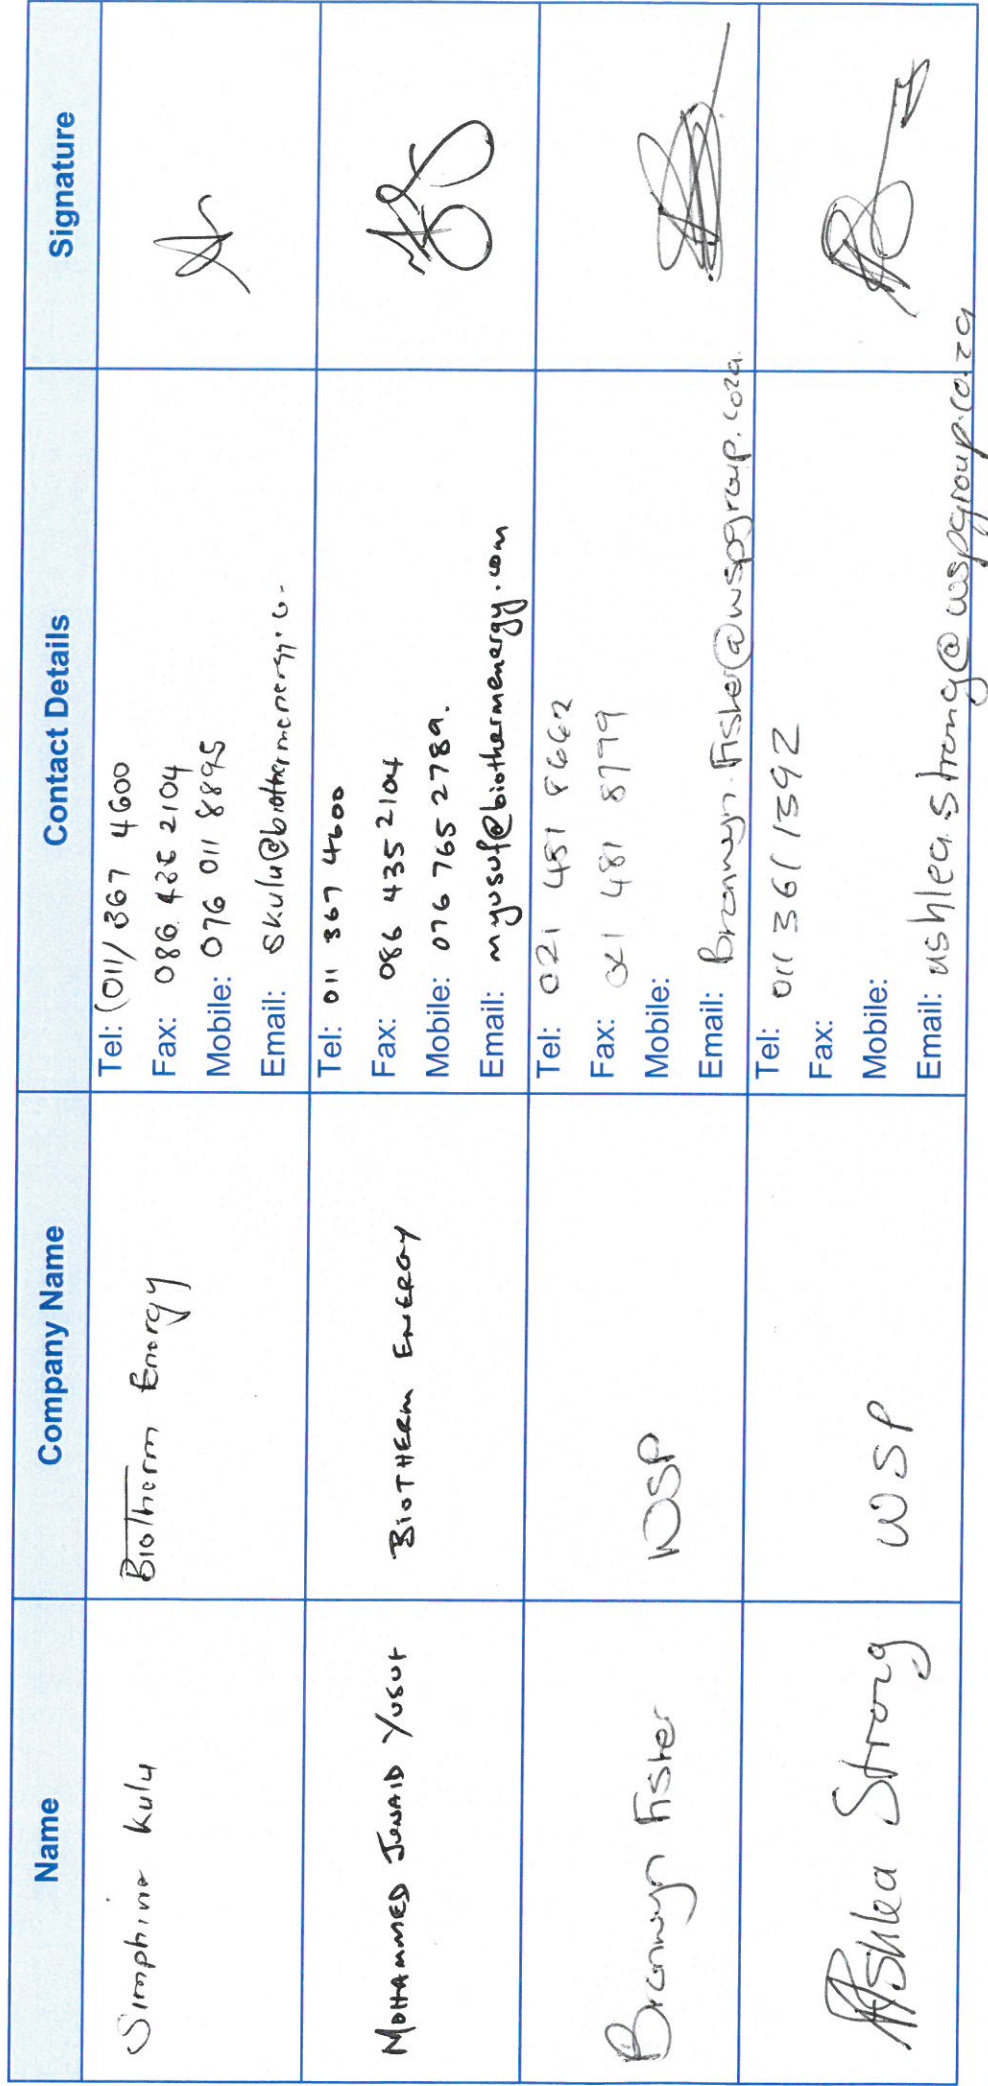 Name Company Name Contact Details Signature
Simphiwe Kulu
Biotherm Energy
Tel: (011) 367 4600
Fax: 086 2104
Mobile: 076 011 8895
Email: skulu@biothermenergy.
MOHAMMED JUNAID YUSUF
BIOTHERM ENERGY
Tel: 011 367 4600
Fax: 086 435 2104
Mobile: 076 765 2789.
Email: myusuf@biothermenergy.com
Bronwyn Fisher
WSP
Tel: 021 481 8662
Fax: 021 481 8799
Mobile:
Email: Bronwyn.Fisher@wspgroup.co.za
Ashlea Strong
WSP
Tel: 011 361 1392
Fax:
Mobile:
Email: ashlea.strong@wspgroup.co.za